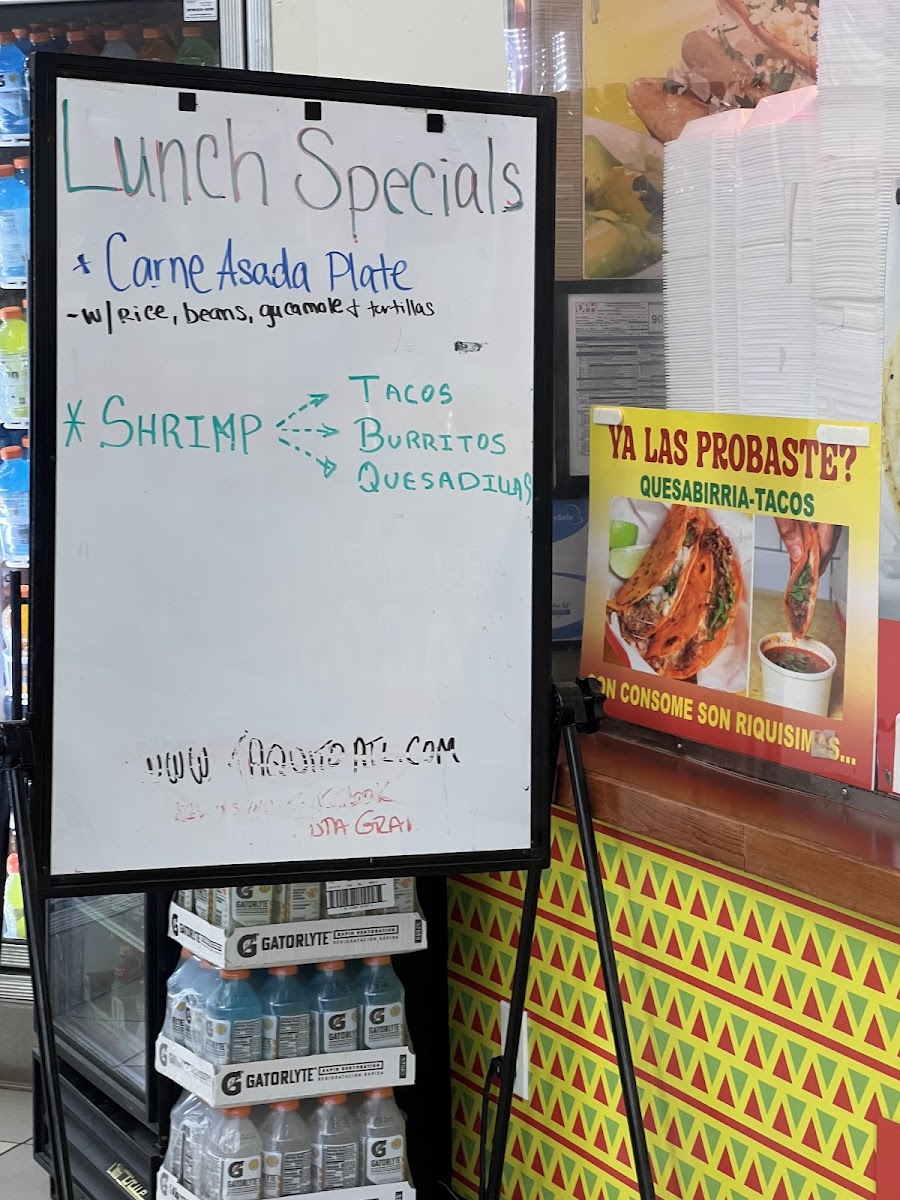 Lunch Specials
* Carne Asada Plate
- w/ Rice, beans, gucamole & tortillas
* SHRIMP
TACOS
BURRITOS
QUESADILLAS
ATL.COM
YA LAS PROBASTE?
QUESABIRRIA-TACOS
CON CONSOME SON RIQUISIMAS...
G GATORLYTE
RAPID REHYDRATION
REHIDRATACIÓN RÁPIDA
G GATORLYTE
RAPID REHYDRATION
REHIDRATACIÓN RÁPIDA